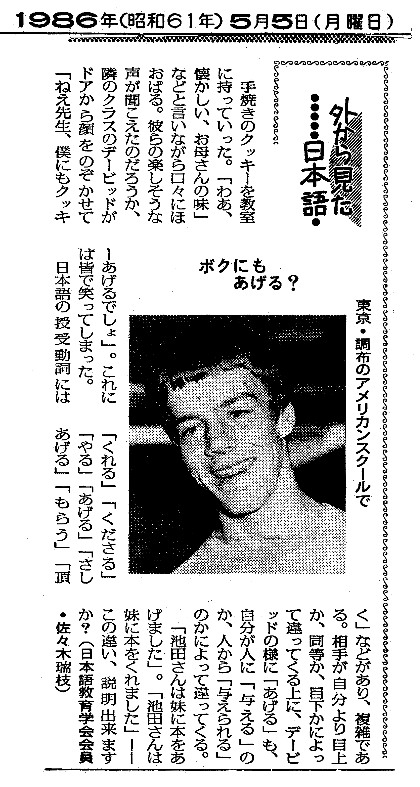 1986年(昭和61年)5月5日(月曜日)
外から見た
……日本語・
手焼きのクッキーを教室
に持っていった。「わあ、
懐かしい、お母さんの味」
などと言いながら口々にほ
おばる。彼らの楽しそうな
声が聞こえたのだろうか、
隣のクラスのデービッドが
ドアから顔をのぞかせて
「ねえ先生、僕にもクッキ
ボクにも
あげる?
東京・調布のアメリカンスクールで
ーあげるでしょ」。これに
は皆で笑ってしまった。
日本語の授受動詞には
「くれる」「くださる」
「やる」「あげる」「さし
あげる」「もらう」「頂
く」などがあり、複雑であ
る。相手が自分より目上
か、同等か、目下かによっ
て違ってくる上に、デービ
ッドの様に「あげる」も、
自分が人に「与える」の
か、人から「与えられる」
のかによって違ってくる。
「池田さんは妹に本をあ
げました」。「池田さんは
妹に本をくれました」――
この違い、説明出来ます
か?(日本語教育学会会員
・佐々木瑞枝)